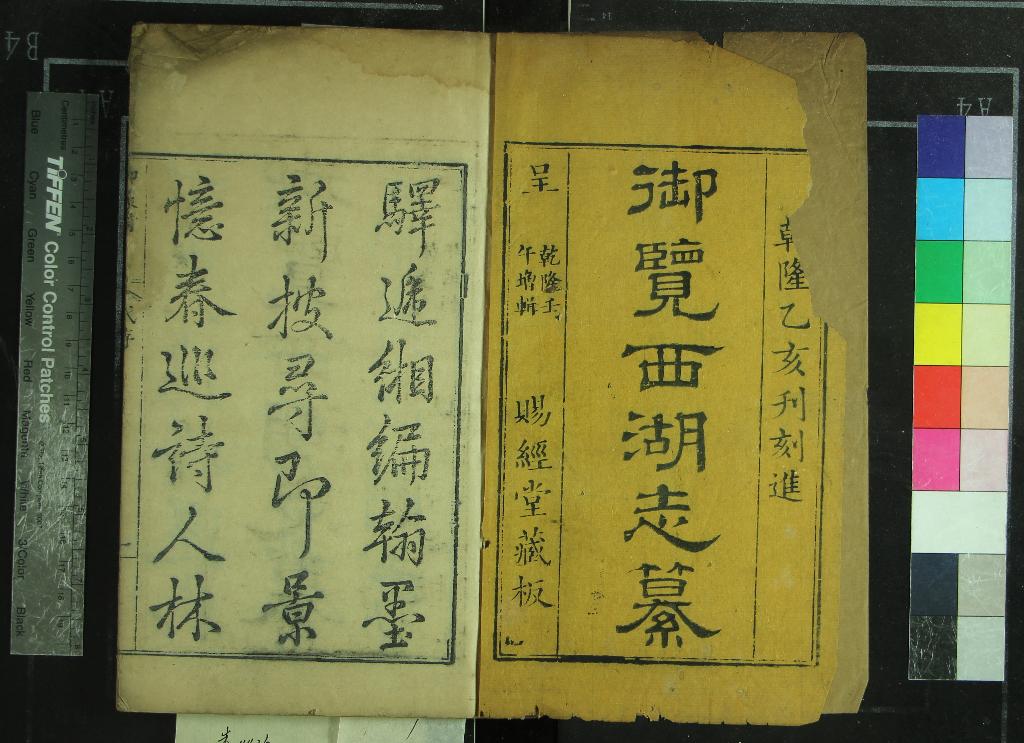 乾隆乙亥刊刻進
御覽西湖志纂
呈 乾隆壬午增輯 賜經堂藏板
驛遞緗編翰墨
新披尋即景
憶春巡詩人林
TIFFEN Color Control Patches
Blue Cyan Green Yellow Red Magenta White 3/Color Black
Centimetres
A4
B4